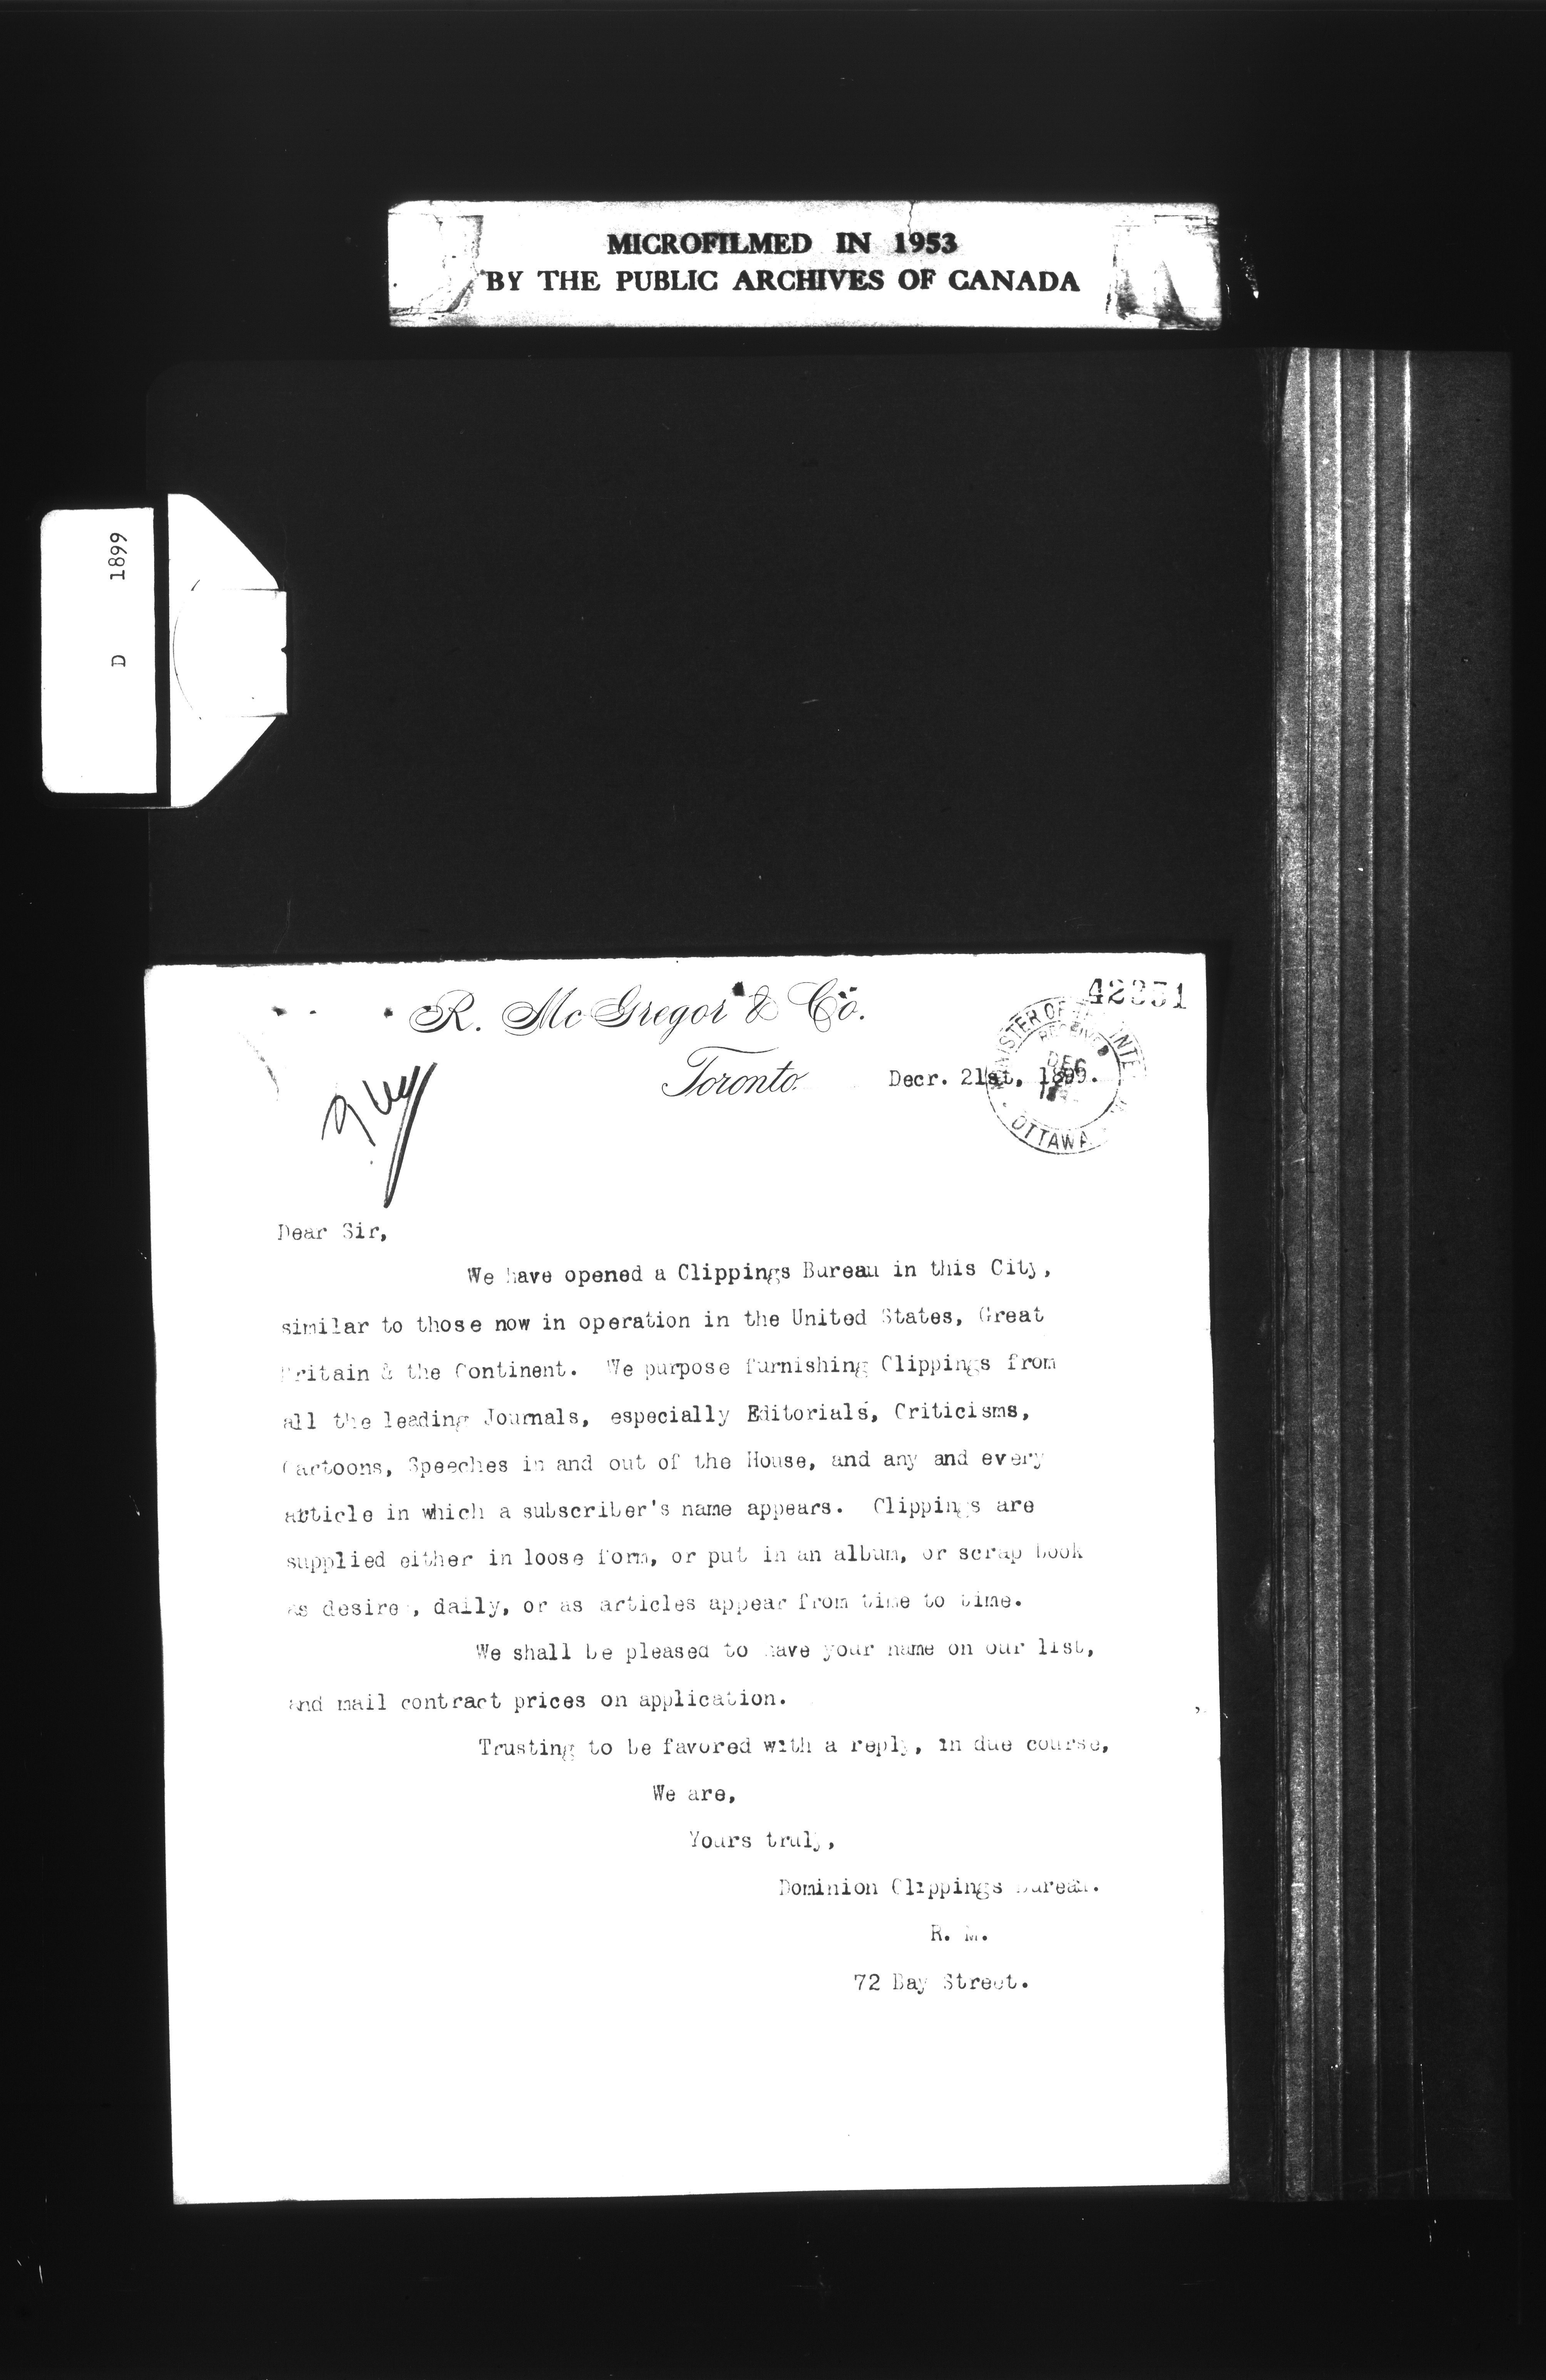 MICROFILMED IN 1953
BY THE PUBLIC ARCHIVES OF CANADA
D 1899
R. McGregor & Co.
Toronto
Decr. 21st, 1899.
OTTAWA
Dear Sir,
We have opened a Clippings Bureau in this City,
similar to those now in operation in the United States, Great
Britain & the Continent. We purpose furnishing Clippings from
all the leading Journals, especially Editorials, Criticisms,
Cartoons, Speeches in and out of the House, and any and every
atticle in which a subscriber's name appears. Clippings are
supplied either in loose form, or put in an album, or scrap book
as desired, daily, or as articles appear from time to time.
We shall be pleased to have your name on our list,
and mail contract prices on application.
Trusting to be favored with a reply, in due course,
We are,
Yours truly,
Dominion Clippings Bureau.
R. M.
72 Bay Street.